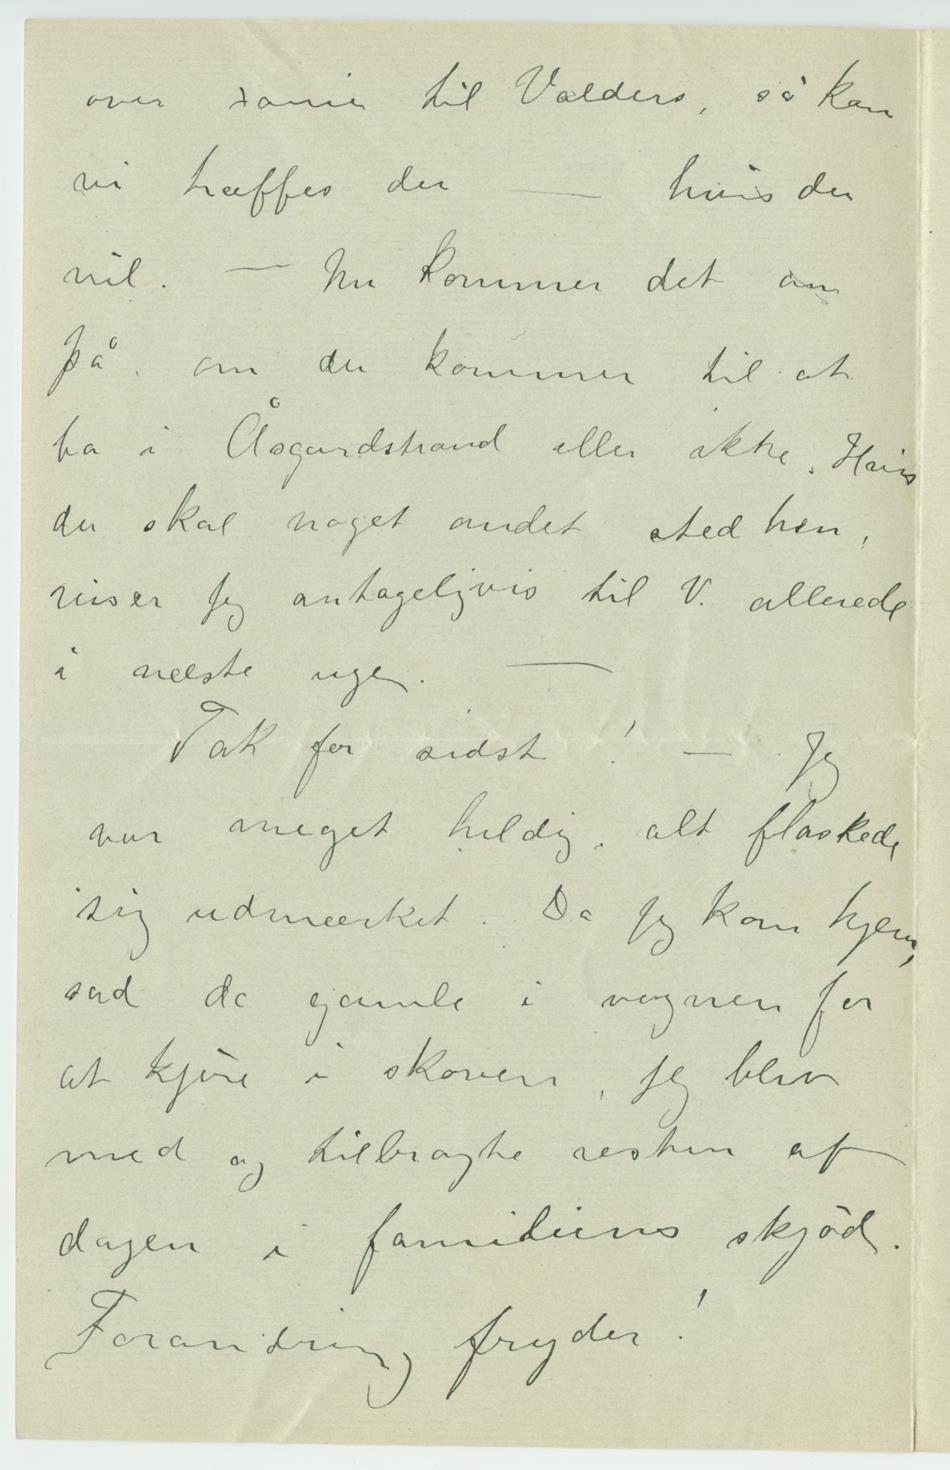 over til Valders, så kan
vi træffes der — hvis du
vil. — Nu kommer det an
på, om du kommer til at
bo i Åsgardstrand eller ikke. Hvis
du skal noget andet sted hen,
reiser jeg antageligvis til V. allerede
i næste uge. —
Tak for sidst! — Jeg
var meget heldig, alt flaskede
sig udmærket. Da jeg kom hjem,
sad de gamle i vognen for
at kjøre i skoven, jeg blev
med og tilbragte resten af
dagen i familiens skjød.
Forandring fryder!